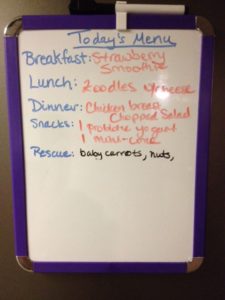 Today's Menu
Breakfast: Strawberry
Smoothie
Lunch: Zoodles w/cheese
Dinner: Chicken breast
Chopped Salad
Snacks: 1 probiotic yogurt
1 mini-cone
Rescue: baby carrots, nuts,